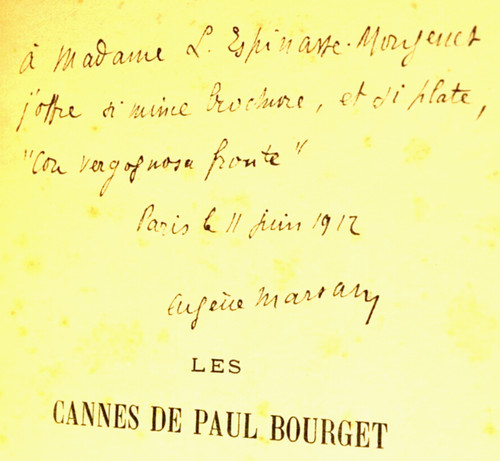 à Madame L. Espinasse-Mongenet
j'offre si mince brochure, et si plate,
"Con vergognosa fronte"
Paris le 11 juin 1912
Eugène Marsan
LES
CANNES DE PAUL BOURGET